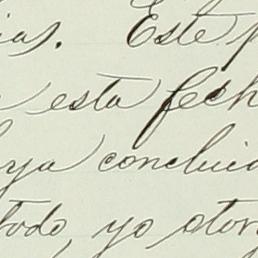 ias. Este p
esta fech
ya concluid
todo, yo otor